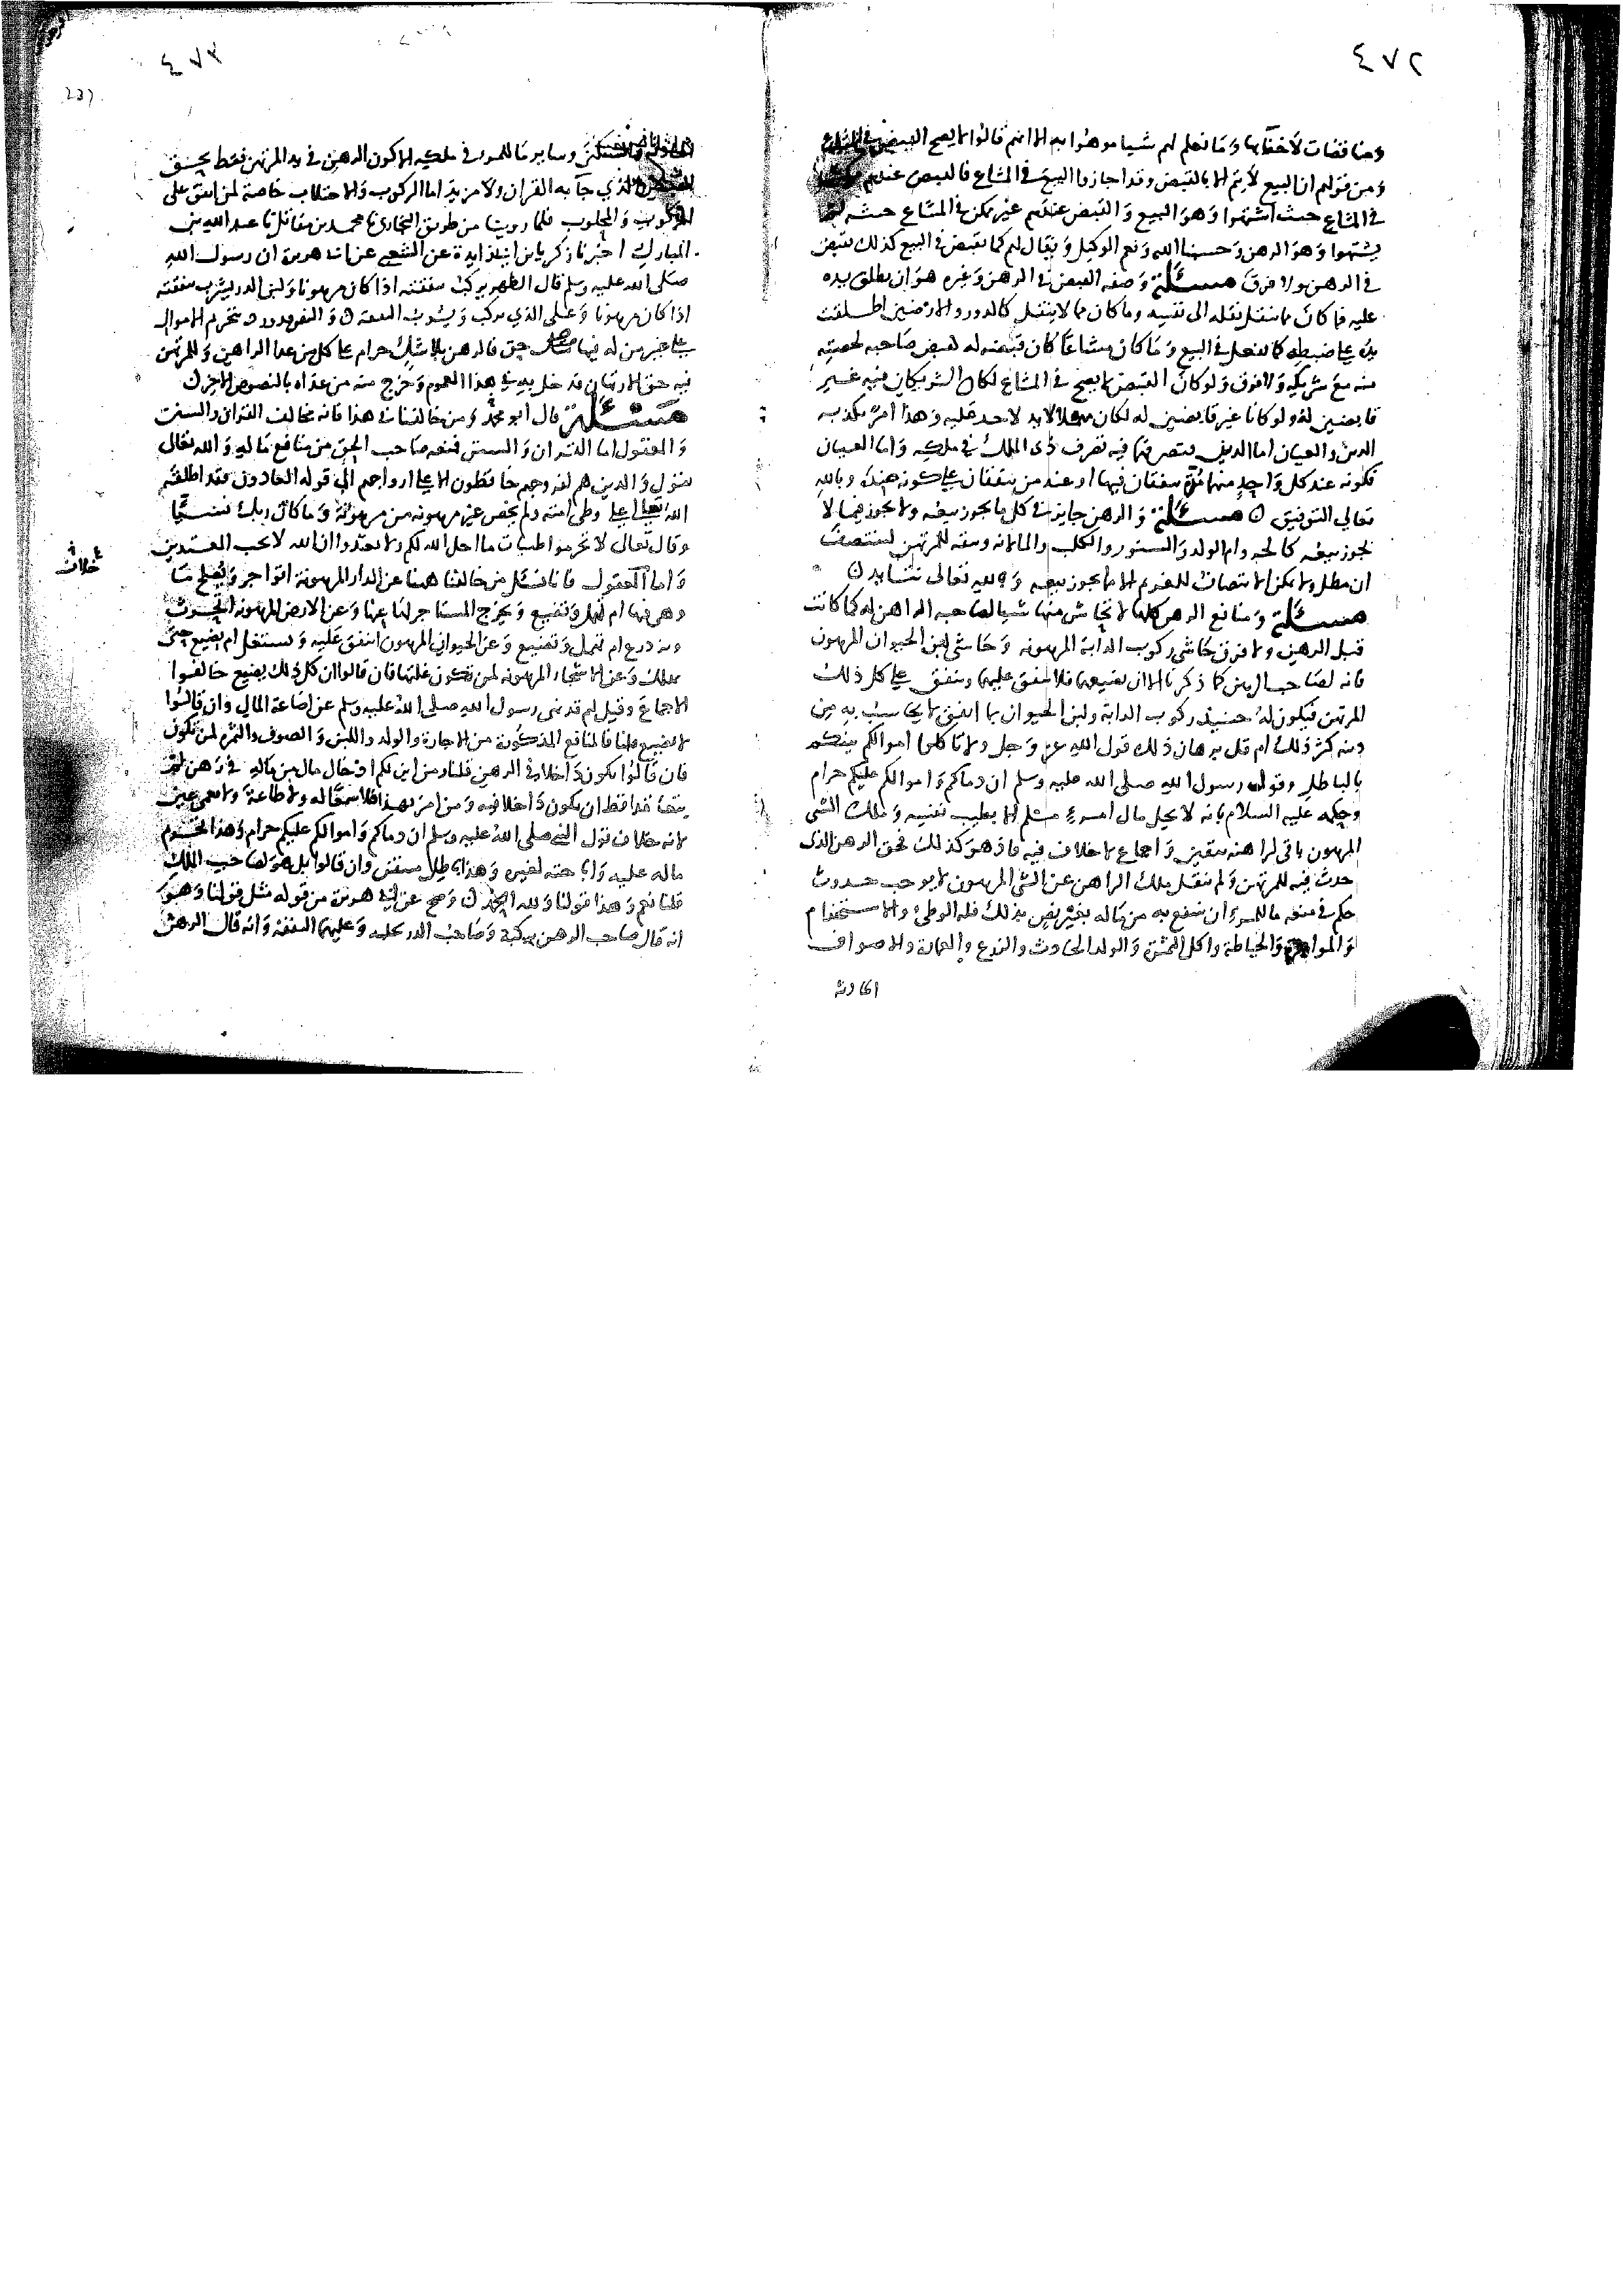 ٤٧٢
ومناقضات لا خفاء بها وما نعلم لهم شيا موهوا به الا انهم قالوا لا يصح القبض في المشاع
ومن قولهم ان البيع لا يتم الا بالقبض وقد اجازوا البيع في المشاع فالقبض عندهم
في المشاع حيث اشتهوا وهو البيع والقبض عندهم غير ممكن في المشاع حيث لم
يشتهوا وهو الرهن وحسبنا الله ونعم الوكيل ويقال لهم كما يقبض في البيع كذلك يقبض
في الرهن ولا فرق مسئلة وصفه القبض في الرهن وغيره هو ان يطلق يده
عليه فما كان مما ينقل نقله الى نفسه وما كان مما لا ينقل كالدور والارضين اطلقت
يده على ضبطه كما يفعل في البيع وما كان مشاعا كان قبضه له كقبض صاحبه لحصته
منه مع شريكه ولا فرق ولو كان القبض لا يصح في المشاع لكان الشريكان فيه غير
قابضين له ولو كانا غير قابضين له لكان مهملا لا يد لاحد عليه وهذا امر يكذبه
الدين والعيان اما الدين فتصرفهما فيه تصرف ذي الملك في ملكه واما العيان
فكونه عند كل واحد منهما مدة يتفقان فيها او عند من يتفقان على كونه عنده وبالله
تعالى التوفيق ن مسئلة والرهن جايز في كل ما يجوز بيعه ولا يجوز فيما لا
يجوز بيعه كالحر وام الولد والسنور والكلب والما لانه وسقه للمرتهن لينتصف
ان مطل ولا يمكن الانتصاف للغريم الا مما يجوز بيعه وبالله تعالى نتايد ن
مسئلة ومنافع الرهن كلها لا تحاش منها شيا لصاحبه الراهن له كما كانت
قبل الرهن ولا فرق حاشى ركوب الدابة المرهونه وحاشى لبن الحيوان المرهون
فانه لصاحب الرهن كما ذكرنا الا ان يضيعهما فلا ينفق عليهما وينفق على كل ذلك
المرتهن فيكون له حينيذ ركوب الدابة ولبن الحيوان بما انفق لا يحاسب به من
دينه كثر ذلك ام قل برهان ذلك قول الله عز وجل ولا تاكلوا اموالكم بينكم
بالباطل وقول رسول الله صلى الله عليه وسلم ان دماكم واموالكم عليكم حرام
وحكمه عليه السلام بانه لا يحل مال امرء مسلم الا بطيب نفسه وملك الشي
المرهون باقي لراهنه بيقين واجماع لا خلاف فيه فاذ هو كذلك فحق الرهن الذي
حدث فيه للمرتهن ولم ينقل ملك الراهن عن الشي المرهون لا يوجب حدوث
حكم في منعه ما للمرء ان ينتفع به من ماله بغير نص بذلك فله الوطئ والاستخدام
والمواجرة والخياطة واكل الثمرة والولد الحادث والزرع والعمارة والاصواف
الحادثة
٤٧٣
237
الحادثة والسكنى وساير ما للمرء في ملكه الا كون الرهن في يد المرتهن فقط بحق
القبض الذي جآ به القران ولا مزيد اما الركوب والاحتلاب خاصة لمن انفق على
المركوب والمحلوب فلما روينا من طريق البخاري نا محمد بن مقاتل نا عبد الله بن
المبارك اخبرنا زكريا بن ابي زايدة عن الشعبي عن ابي هريرة ان رسول الله
صلى الله عليه وسلم قال الظهر يركب بنفقته اذا كان مرهونا ولبن الدر يشرب بنفقته
اذا كان مرهونا وعلى الذي يركب ويشرب النفقة ن والنص ورد بتحريم الاموال
على غير من له فيها حق فالرهن بلا شك حرام على كل من عدا الراهن وللمرتهن
فيه حق الارتهان فدخل به في هذا العموم وخرج منه من عداه بالنصوص الاخر ن
مسئلة قال ابو محمد ومن خالفنا في هذا فانه مخالف القران والسنن
والمعقول اما القران والسنن فمنعه صاحب الحق من منافع ماله والله تعالى
يقول والذين هم لفروجهم حافظون الا على ازواجهم الى قوله العادون فقد اطلقه
الله تعالى على وطى امته ولم يخص غير مرهونه من مرهونة وما كان ربك نسيا
وقال تعالى لا تحرموا طيبات ما احل الله لكم ولا تعتدوا ان الله لا يحب المعتدين
واما المعقول فانا نسئل من خالفنا ههنا عن الدار المرهونة اتواجر ويصلح ما
وهى منها ام تهمل وتضيع ويخرج المستاجر لها عنها وعن الارض المرهونه اتحرث
وتزدرع ام تهمل وتضيع وعن الحيوان المرهون اينفق عليه ويستغل ام يضيع حتى
يهلك وعن الاشجار المرهونه لمن تكون غلتها فان قالوا ان كل ذلك يضيع خالفوا
الاجماع وقيل لهم قد نهى رسول الله صلى الله عليه وسلم عن اضاعة المال وان قالوا
لا يضيع قلنا فالمنافع المذكورة من الاجارة والولد واللبن والصوف والثمر لمن تكون
فان قالوا يكون داخلا في الرهن قلنا ومن اين لكم ادخال مال من ماله في رهن لم
يتعاقدا قط ان يكون داخلا فيه ومن امر بهذا فلا سمعا له ولا طاعة ولا نعمى عين
لانه خلاف قول النبي صلى الله عليه وسلم ان دماكم واموالكم عليكم حرام وهذا تحريم
ماله عليه واباحته لغيره وهذا باطل متيقن وان قالوا بل هو لصاحب الملك
قلنا نعم وهذا قولنا ولله الحمد ن وصح عن ابي هريرة من قوله مثل قولنا وهو
انه قال صاحب الرهن يركبه وصاحب الدر يحلبه وعليهما النفقة وانه قال الرهن
غلات